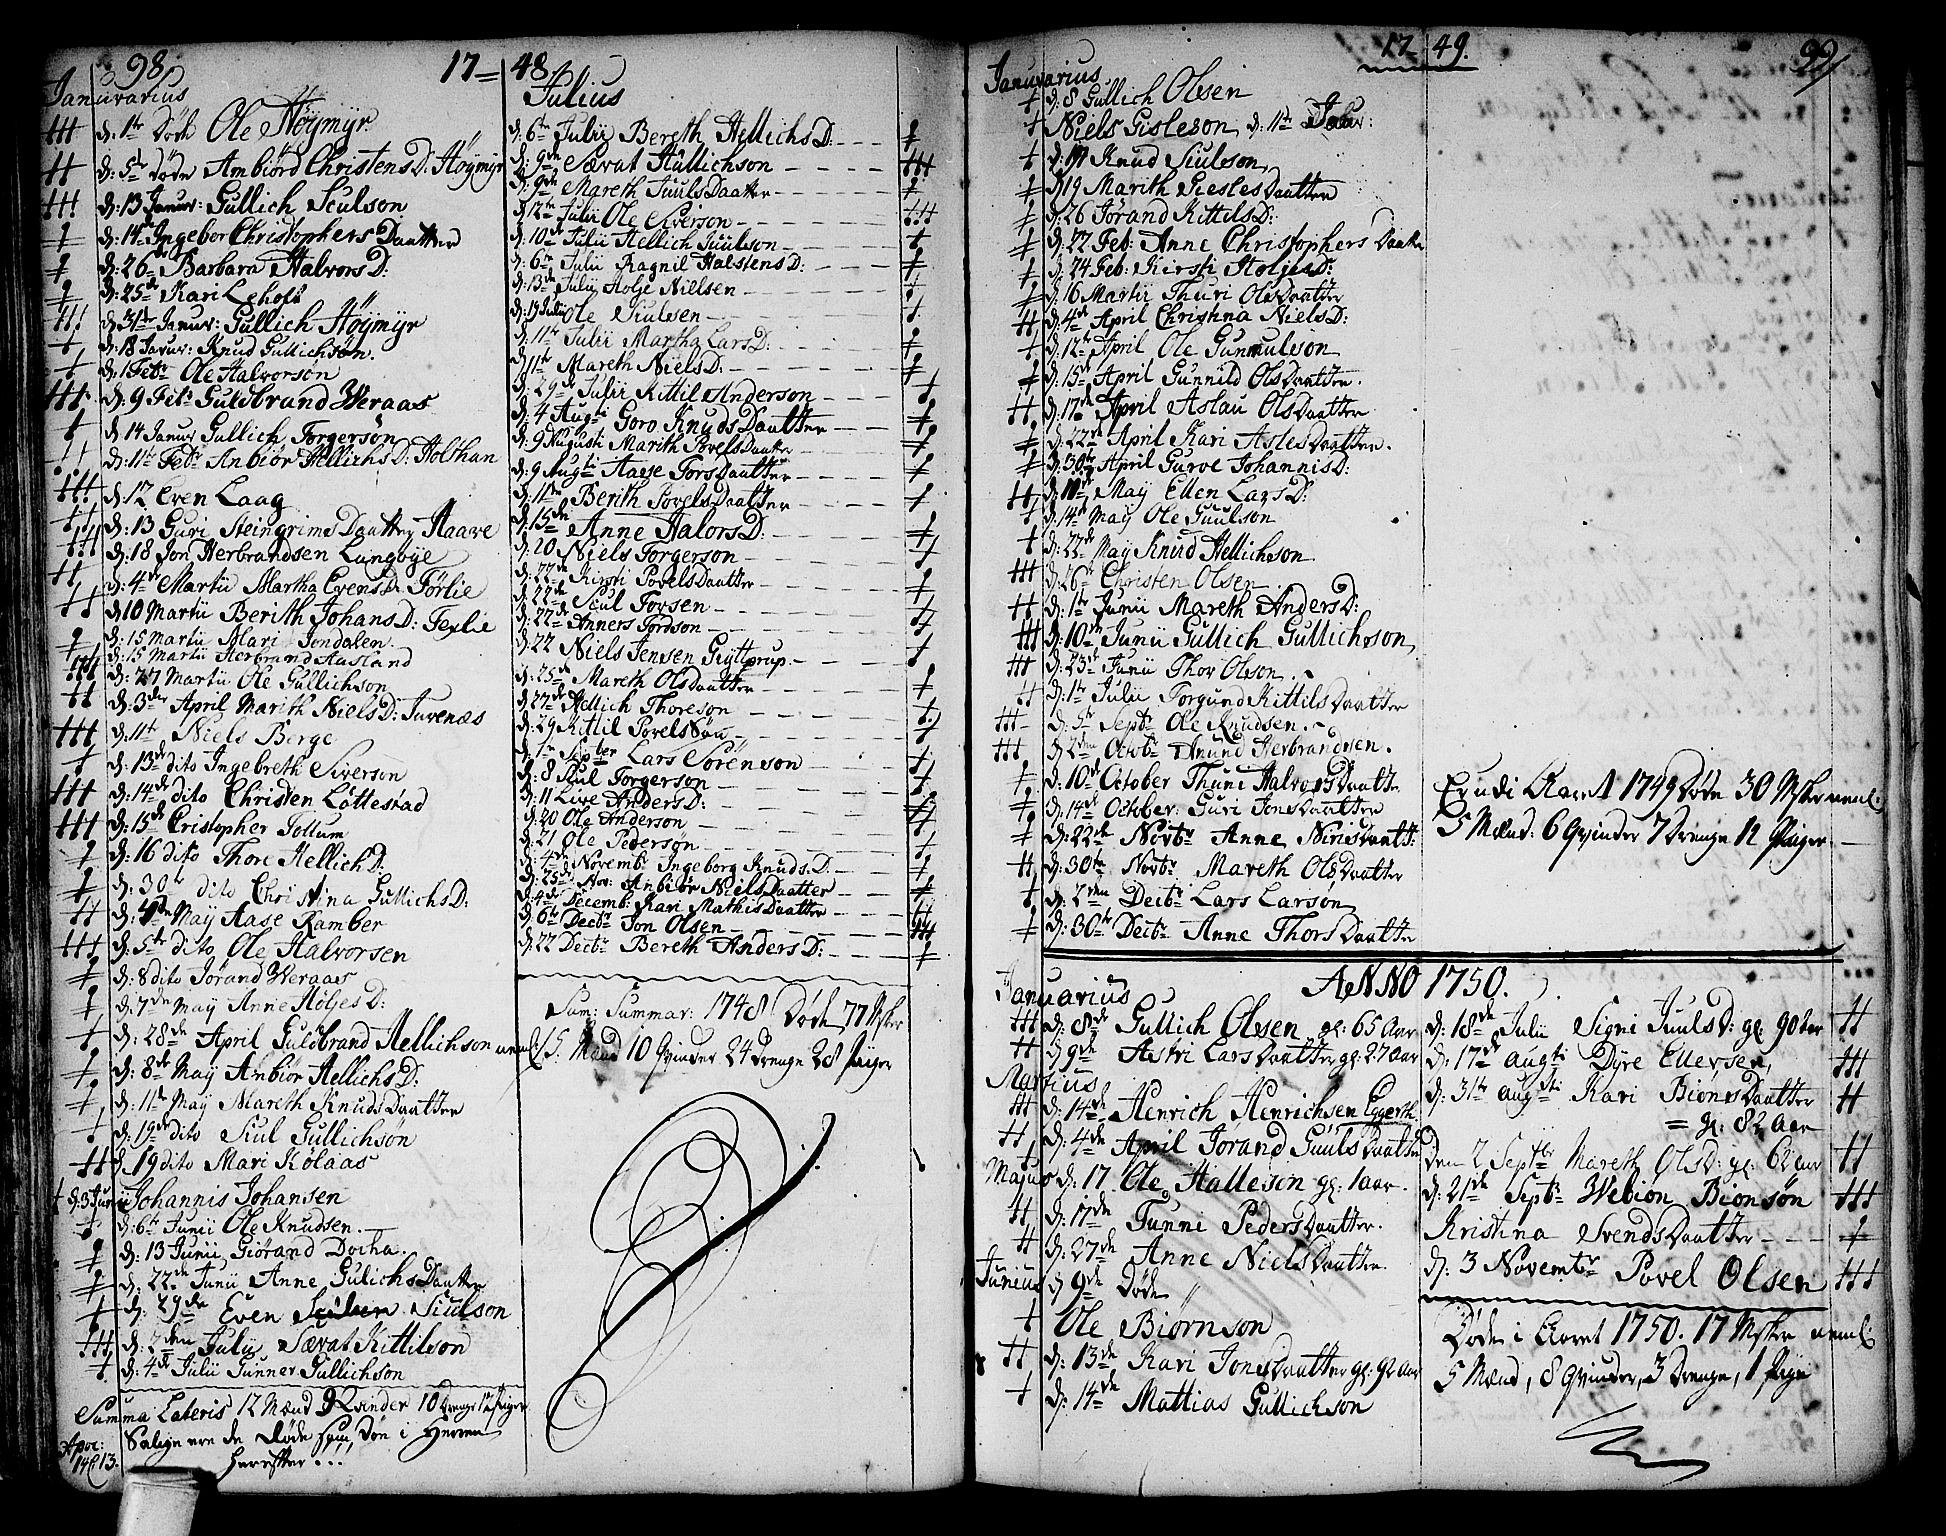 98. 17 = 48
Januvarius
d: 1te Døde Ole Høymyr
d: 5te døde Ambiörd Christens D: Höÿmÿr
d: 13 Janur: Gullich Sculson
d: 14 Ingebor Christophers Daatter
d: 26 Barbara Halvors D:
d: 25de Kari Leholt
d: 31te Janur: Gullich Höÿmÿr
d: 18 Janur: Knud Gullichsön
d: 1 Febr Ole Halvorsön
d: 9 Feb: Guldbrand Weraas
d 14 Janur Gullich Torgersön
d: 11te Febr Anbiör Hellichs D: Holthan
d: 12 Even Laag
d: 13 Guri Steingrims Daatter Haave
d: 18 Jon Herbrandsen Langbye
d: 4de Martii Martha Evens D: Förlie
d: 10 Martii Berith Johans D:
d: 15 Martii Mari Jondalen
d: 15 Martii Herbrand Aasland
d: 27 Martii Ole Gullichson
d: 3die April Marith Niels D: Juvenæs
d: 11te Niels Berge
d: 13de dito Ingebreth Siverson
d: 14de dito Christen Löttestad
d: 15de Cristopher Tollum
d: 16 dito Thore Hellich D:
d: 30te dito Christina Gullichs D:
d: 4de May Aase Ramber
d: 5te dito Ole Halvorsen
d: 8 dito Jörand Weraas
d: 7de May Anne Holjes D:
d: 28de April Guldbrand Hellichson
d: 8de May Ambiör Hellichs D:
d: 11te May Mareth Knuds Daatter
d: 19de dito Siul Gullichsön
d. 19 dito Mari Kolaas
d: 3 Junii Johannis Johansen
d: 6te Junii Ole Knudsen
d: 13 Junii Giörand Docha
d: 22de Junii Anne Gulichs Daatter
d: 29de Even Siulson
d: 2den July Sævat Kittilson
d: 4de Julii Gunner Gullichson
Summa Lateris 12 Mænd 9 Kvinder 10 Drenge 12 Piger
Salige ere de Døde som døe i Herren
herefter...
Apoc: 14 C. 13.
Julius
d: 6te Julii Bereth Hellichs D:
d: 9de Sævat Hullichson
d: 9de Mareth Juuls Daatter
d: 12te Julii Ole Siverson
d: 10de Julii Hellich Suulson
d: 6te Julii Ragnil Halstens D:
d: 13de Julii Holje Nielsen
d: 17 Julii Ole Siulsen
d: 11te Julii Martha Lars D:
d 11te Mareth Niels D:
d: 29de Julii Kittil Anderson
d: 4 Augti Goro Knuds Daatter
d: 9 Augusti Marith Povels Daatter
d: 9 Augti Aase Tors Daatter
d: 11te Berith Povels Daatter
d: 15de Anne Halors D:
d: 20 Niels Torgerson
d: 22de Kirsti Povels Daatter
d: 22de Scul Torsen
d: 22de Anners Tordson
d: 22 Niels Jensen Gyttrup
d: 25de Mareth Ols Daatter
d: 27de Hellich Thoreson
d: 29 Kittil Povels Søn
d: 1te September Lars Sörenson
d: 8 Skul Torgerson
d: 11 Live Anders D:
d: 20 Ole Anderson
d: 21 Ole Pedersön
d: 4de Novembr Ingeborg Knuds D:
d: 25de Nov: Anbiör Niels Daatter
d: 4de Decemb: Kari Mathis Daatter
d: 6te Decbr Jon Olsen
d: 22 Decbr Bereth Anders D:
Sum: Summar: 1748 Døde 77 Msker
neml: 15 Mænd 10 Qvinder 24 Drenge 28 Piger
17 = 49. 99
Januvarius
d: 8 Gullich Olsen
Niels Gisleson d: 11te Janr:
d: 17 Knud Siulson
d 19 Marith Giesles Daatter
d: 26 Jörand Kittils D:
d: 22 Feb: Anne Christophers Daatter
d: 24 Feb: Kirsti Holjes D:
d: 16 Martii Thuri Ols Daatter
d: 4de April Christina Niels D:
d: 12te April Ole Gunnulson
d: 15de April Gunnild Ols Daatter
d: 17de April Aslau Ols Daatter
d: 22de April Kari Asles Daatter
d: 30te April Gurve Johannis D:
d: 10de May Ellen Lars D:
d: 14de May Ole Guulson
d: 22de May Knud Hellichson
d: 26te Christen Olsen
d: 1te Junii Mareth Anders D:
d: 10de Junii Gullich Gullichson
d: 23de Junii Thor Olson
d: 1te Julii Torgund Kittils Daatter
d: 5te Septbr Ole Knudsen
d 2den Octobr Anund Herbrandsen
d: 10de October Thuri Halvors Daatter
d: 14de October: Guri Jons Daatter
d: 22de Novbr Anne Niris Daatt:
d: 30te Novbr Mareth Ols Daatter
d: 2den Decbr Lars Larson
d: 30te Decbr Anne Thors Daatter
Er udi Aaret 1749 Døde 30 Msker neml:
5 Mænd: 6 Qvinder 7 Drenge 12 Piger
ANNO 1750.
Januarius
d: 8de Gullich Olsen gl: 65 Aar
d 9de Astri Lars Daatter gl: 27 aar
Martius
d: 14de Henrich Henrichsen Eggerth
d: 4de April Jörand Guuls Daatter
Majus d: 17 Ole Halleson gl: 1 aar
d: 17de Tunni Peders Daatter.
d: 27de Anne Niels Daatter.
Junius d 9de Døde
Ole Biörnson
d: 13de Kari Jons Daatter gl: 92 aar
d: 14de Mattias Gullichson
d: 18de Julii Signi Juuls D: gl 90 ter
d: 17de augti Dyre Ellevsen
d: 31te augsti Kari Bions Daatter
= gl: 82 Aar
den 2 Septbr Mareth Ols D: gl: 62 aar
d: 21de Septbr Webion Bionsön
Kristina Svends Daatter
d: 3 Novembr Povel Olsen
Døde i Aaret 1750. 17 Msker neml:
5 Mænd, 8 Qvinder, 3 Drenge, 1 Pige